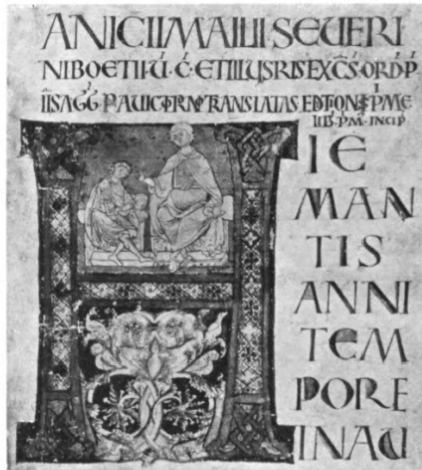 ANICII MALLII SEUERI
NI BOETII · U · C · ET ILLUSRIS EXCS · ORD · P
IISAGG · TRANSLATAS
LIB · PM · INCIP
H IE
MAN
TIS
ANNI
TEM
PORE
INAU